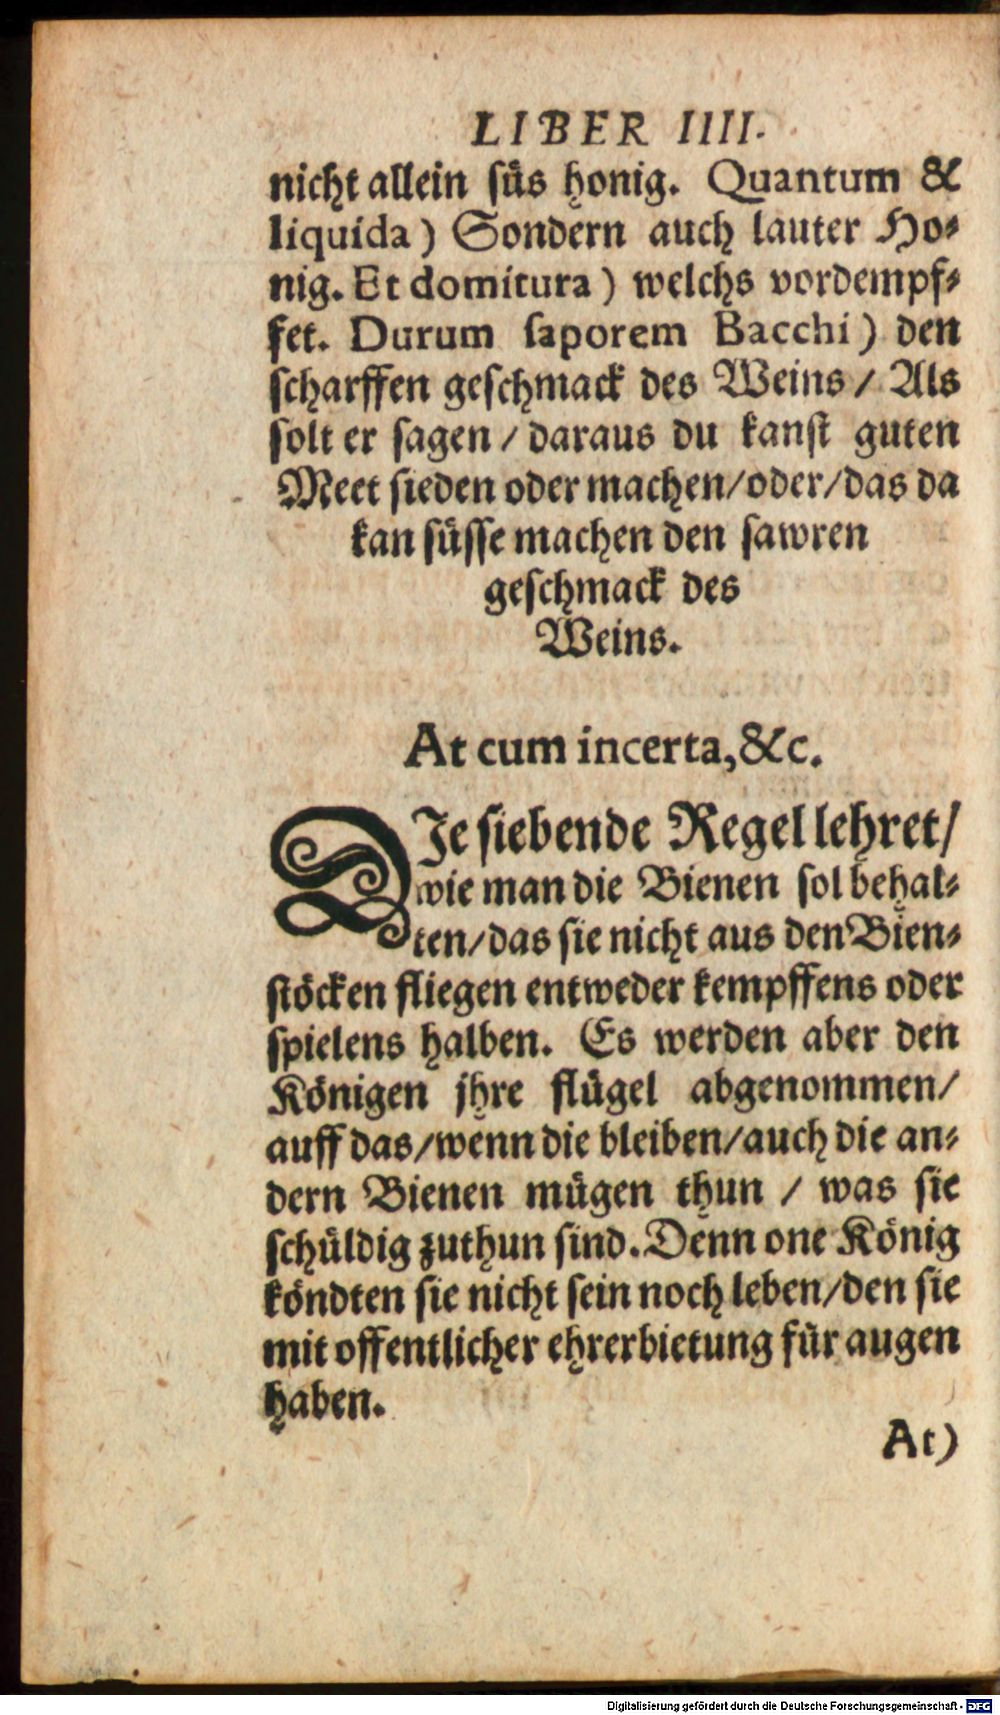 LIBER IIII.
nicht allein süs honig. Quantum &
liquida) Sondern auch lauter Ho⸗
nig. Et domitura) welchs vordempf⸗
fet. Durum saporem Bacchi) den
scharffen geschmack des Weins / Als
solt er sagen / daraus du kanst guten
Meet sieden oder machen/oder/das da
kan süsse machen den sawren
geschmack des
Weins.
At cum incerta,&c.
DIe siebende Regel lehret/
wie man die Bienen sol behal⸗
ten/das sie nicht aus den Bien⸗
stöcken fliegen entweder kempffens oder
spielens halben. Es werden aber den
Königen jhre flügel abgenommen/
auff das/wenn die bleiben/auch die an⸗
dern Bienen mügen thun / was sie
schüldig zuthun sind. Denn one König
köndten sie nicht sein noch leben/den sie
mit offentlicher ehrerbietung für augen
haben.
At)
Digitalisierung gefördert durch die Deutsche Forschungsgemeinschaft - DFG